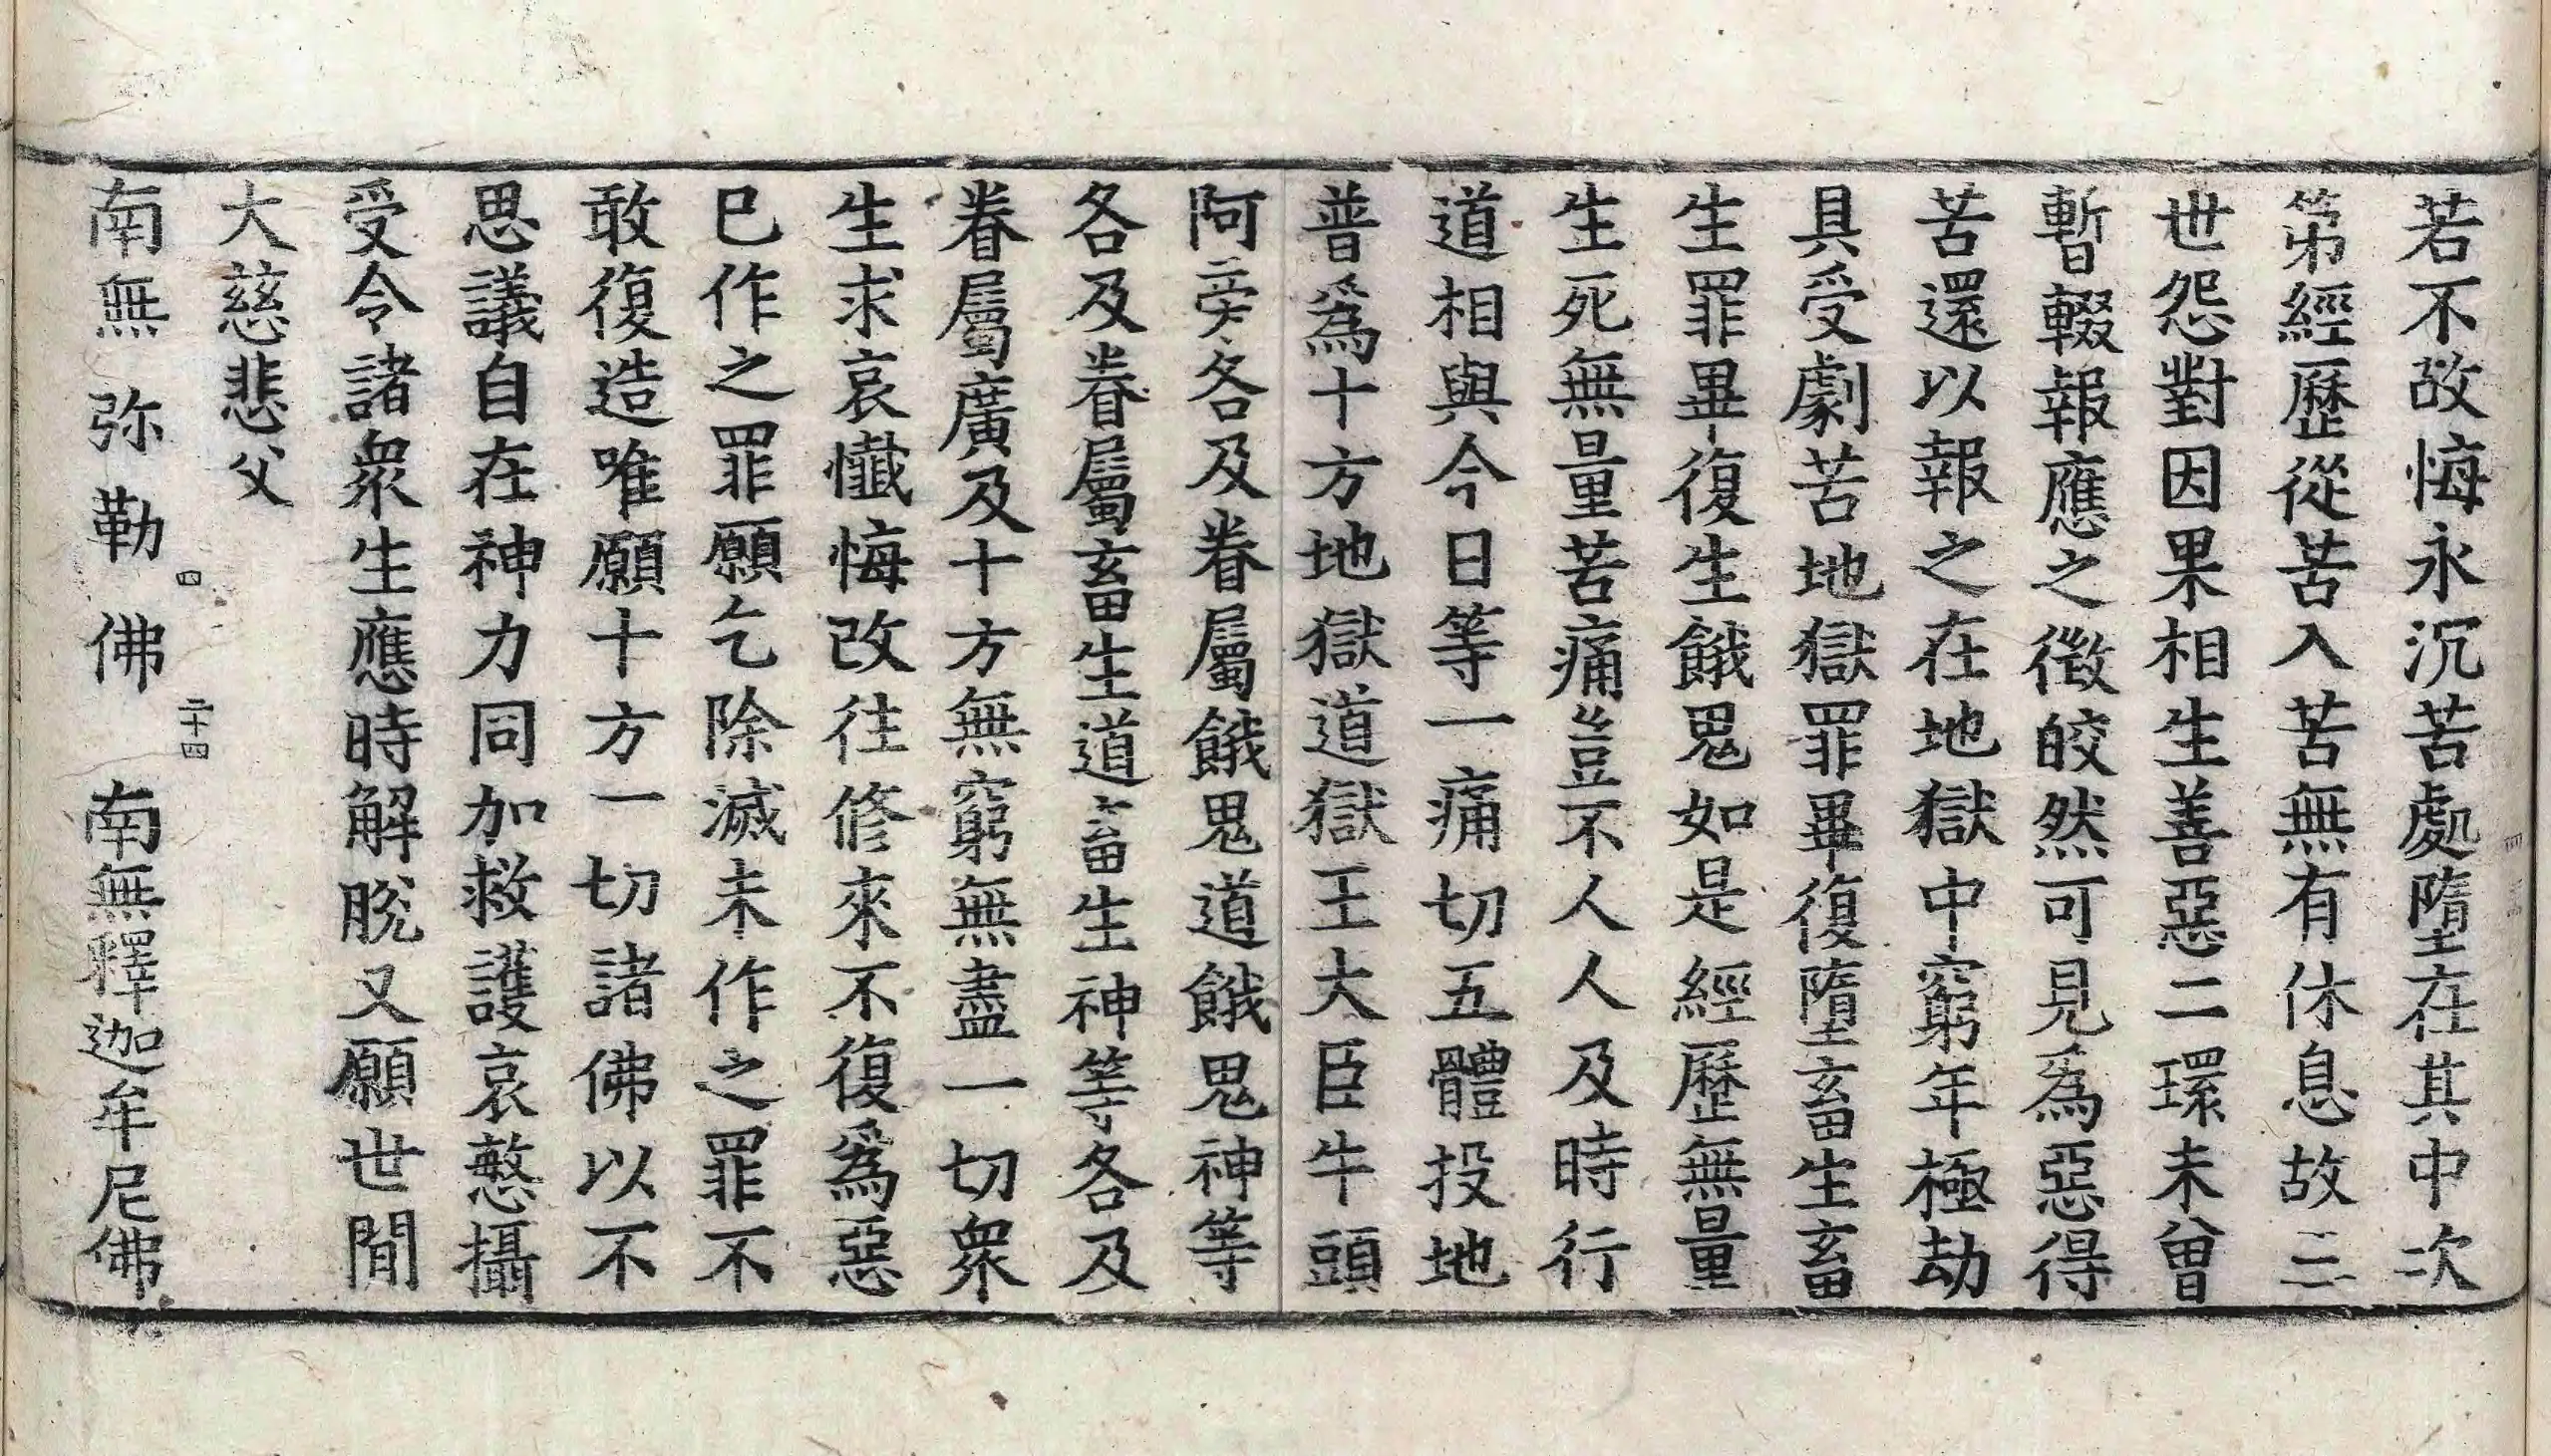 若不改悔永沉苦處墮在其中次
第經歷從苦入苦無有休息故三
世怨對因果相生善惡二環未曾
暫輟報應之徵皎然可見爲惡得
苦還以報之在地獄中窮年極劫
具受劇苦地獄罪畢復墮畜生畜
生罪畢復生餓鬼如是經歷無量
生死無量苦痛豈不人人及時行
道相與今日等一痛切五體投地
普爲十方地獄道獄王大臣牛頭
阿旁各及眷屬餓鬼道餓鬼神等
各及眷屬畜生道畜生神等各及
眷屬廣及十方無窮無盡一切衆
生求哀懺悔改往修來不復爲惡
已作之罪願乞除滅未作之罪不
敢復造唯願十方一切諸佛以不
思議自在神力同加救護哀愍攝
受令諸衆生應時解脫又願世間
大慈悲父
四 二十四
南無弥勒佛 南無釋迦牟尼佛